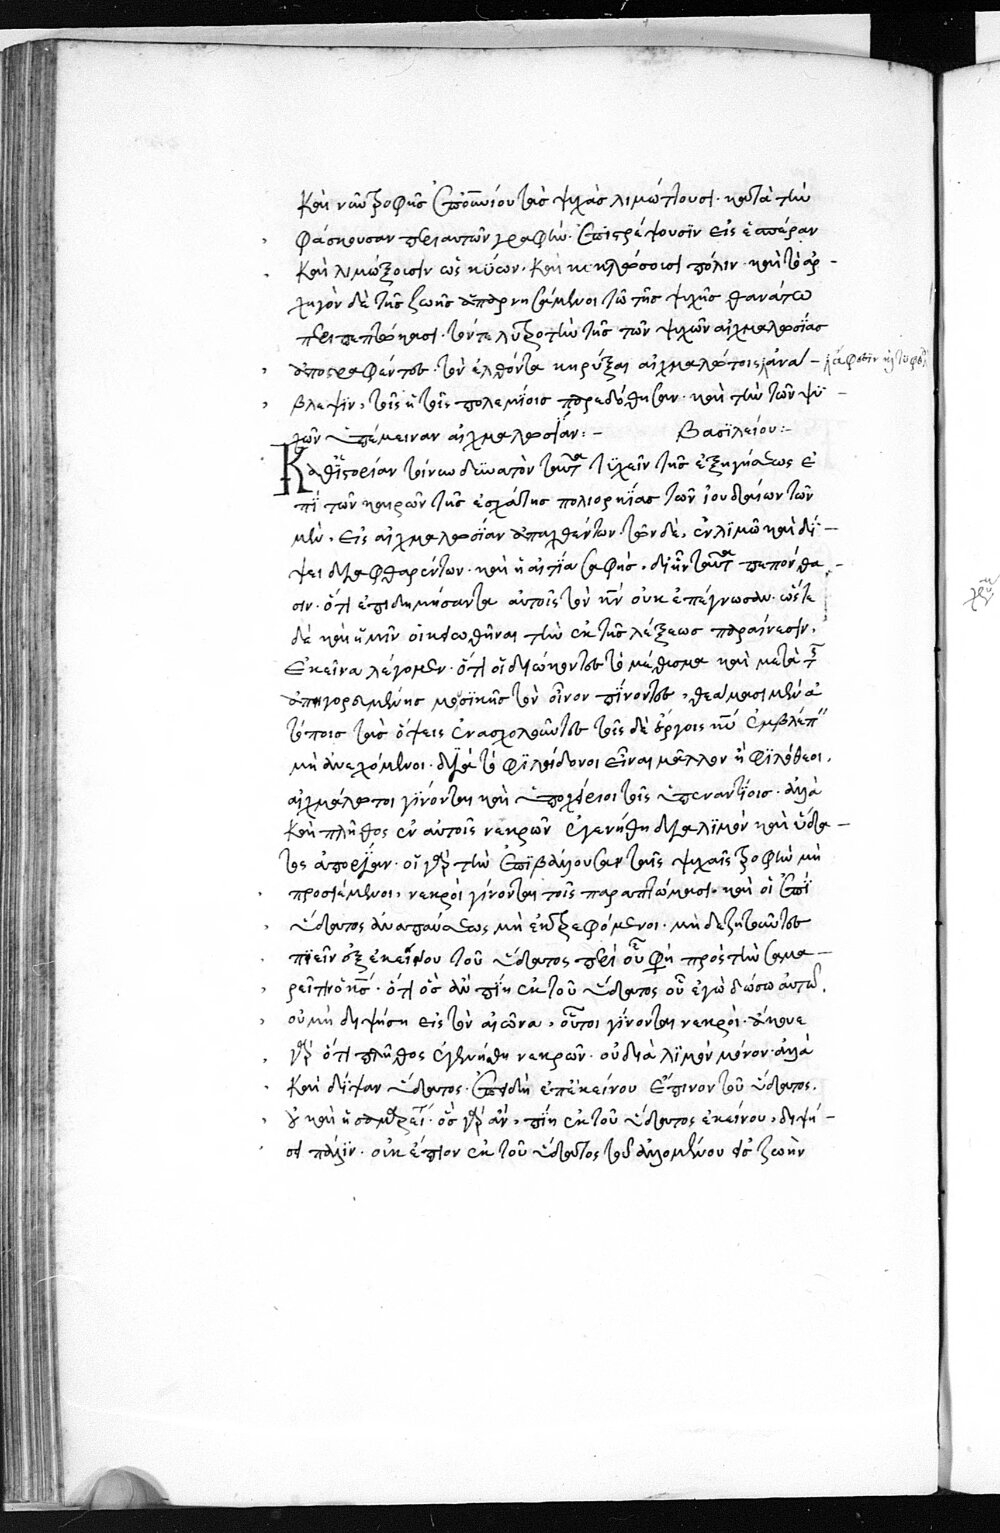 καὶ νῦν τροφῆς ἐπουρανίου τὰς ψυχὰς λιμώττουσι· κατὰ τὴν
φάσκουσαν περὶ αὐτῶν γραφήν· ἐπιστρέψουσιν εἰς ἑσπέραν
καὶ λιμώξουσιν ὡς κύων· καὶ κυκλώσουσι πόλιν· καὶ τὸν ἀρ-
χηγὸν δὲ τῆς ζωῆς ἀπαρνησάμενοι τῷ τῆς ψυχῆς θανάτῳ
περιπεπτώκασι· τόν τε λυτρωτὴν τῆς τῶν ψυχῶν αἰχμαλωσίας
ἀποστραφέντες· τὸν ἐλθόντα κηρύξαι αἰχμαλώτοις ἀνά-
ἄφεσιν καὶ τυφλοῖς
βλεψιν, τοῖς πολεμίοις παρεδόθησαν· καὶ τὴν τῶν ψυ-
χῶν ὑπέμειναν αἰχμαλωσίαν:- Βασιλείου:-
Καθ' ἱστορίαν τοίνυν δυνατὸν ταῦτα τυχεῖν τῆς ἐξηγήσεως ἐ
πὶ τῶν καιρῶν τῆς ἐσχάτης πολιορκίας τῶν ἰουδαίων τῶν
μὲν, εἰς αἰχμαλωσίαν ἀπαχθέντων· τῶν δὲ, ἐν λιμῷ καὶ δί-
ψει διαφθαρέντων· καὶ ἡ αἰτία σαφής, δι' ἣν ταῦτα πεπόνθα-
σιν· ὅτι ἐπιδημήσαντα αὐτοῖς τὸν κν οὐκ ἐπέγνωσαν· ὥστε
δὲ καὶ ἡμῖν οἰκειωθῆναι τὴν ἐκ τῆς λέξεως παραίνεσιν,
ἐκεῖνα λέγομεν· ὅτι οἱ διώκοντες τὸ μέθυσμα καὶ μετὰ τῆς
ἀπηγορευμένης μουσικῆς τὸν οἶνον πίνοντες, θεάμασι μὲν ἀ
τόποις τὰς ὄψεις ἐνασχολοῦντες τοῖς δὲ ἔργοις κυ ἐμβλέπειν
μὴ ἀνεχόμενοι· διὰ τὸ φιλήδονοι εἶναι μᾶλλον ἢ φιλόθεοι,
αἰχμάλωτοι γίνονται καὶ ὑποχείριοι τοῖς ὑπεναντίοις· ἀλλὰ
καὶ πλῆθος ἐν αὐτοῖς νεκρῶν ἐγενήθη διὰ λιμὸν καὶ ὕδα-
τος ἀπορίαν· οἱ γὰρ τὴν ἐπιβάλλουσαν ταῖς ψυχαῖς τροφὴν μὴ
προσιέμενοι, νεκροὶ γίνονται τοῖς παραπτώμασι· καὶ οἱ ἐπὶ
ὕδατος ἀναπαύσεως μὴ ἐκτρεφόμενοι· μὴ δὲ ζητοῦντες
πιεῖν ἐξ ἐκείνου τοῦ ὕδατος περὶ οὗ φη πρὸς τὴν σαμα-
ρεῖτιν ὁ κς· ὅτι ὃς ἂν πίῃ ἐκ τοῦ ὕδατος οὗ ἐγὼ δώσω αὐτῷ,
οὐ μὴ διψήσῃ εἰς τὸν αἰῶνα, οὗτοι γίνονται νεκροί· ἄκουε
γὰρ ὅτι πλῆθος ἐγενήθη νεκρῶν· οὐ διὰ λιμὸν μόνον· ἀλλὰ
καὶ δίψαν ὕδατος· ἐπειδὴ ἐπ' ἐκείνου ἔπινον τοῦ ὕδατος,
οὗ καὶ ἡ σαμαρεῖτις· ὃς γὰρ ἂν, πίῃ ἐκ τοῦ ὕδατος ἐκείνου, διψή-
σει πάλιν· οὐκ ἔπιον ἐκ τοῦ ὕδατος τοῦ ἁλλομένου εἰς ζωὴν